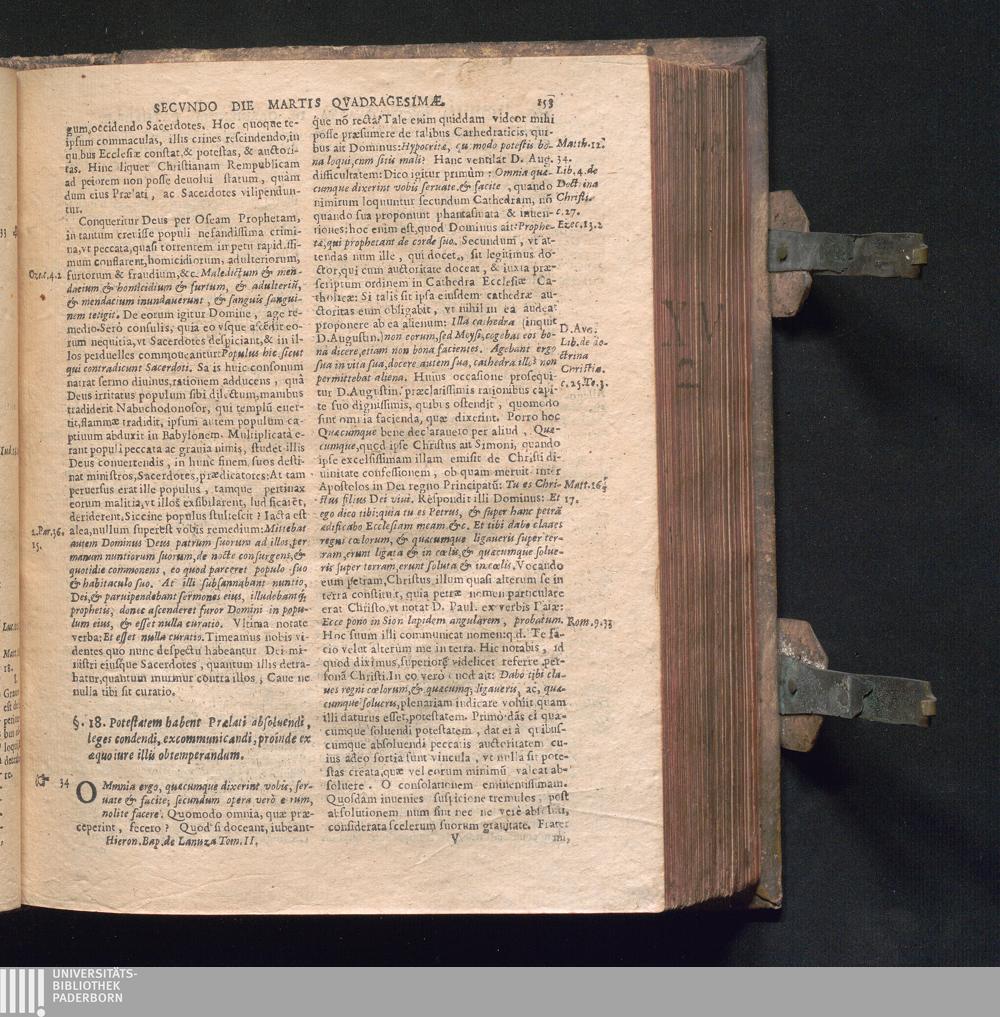 SECVNDO DIE MARTIS QVADRAGESIMÆ. 153
gum, occidendo Sacerdotes. Hoc quoque te-
ipsum commaculas, illis crines rescindendo, in
quibus Ecclesiæ constat, & potestas, & auctori-
tas. Hinc liquet Christianam Rempublicam
ad peiorem non posse deuolui statum, quàm
dum eius Prælati, ac Sacerdotes vilipendun-
tur.
Conqueritur Deus per Oseam Prophetam,
in tantum creuisse populi nefandissima crimi-
na, vt peccata, quasi torrentem impetu rapidissi-
mum conflarent, homicidiorum, adulteriorum,
furtorum & fraudium, &c. Maledictum & men-
dacium & homicidium & furtum, & adulteriū,
& mendacium inundauerunt, & sanguis sangui-
nem tetigit. De eorum igitur Domine, age re-
medio. Serò consulis, quia eo vsque ascēdit eo-
rum nequitia, vt Sacerdotes despiciant, & in il-
los perduelles commoueantur: Populus hic sicut
qui contradicunt Sacerdoti. Satis huic consonum
narrat sermo diuinus, rationem adducens, quâ
Deus irritatus populum sibi dilectum, manibus
tradiderit Nabuchodonosor, qui templū euer-
tit, flammæ tradidit, ipsum autem populum ca-
ptiuum abduxit in Babylonem. Multiplicata e-
rant populi peccata ac grauia nimis, studet illis
Deus conuertendis, in hunc finem suos desti-
nat ministros, Sacerdotes, prædicatores: At tam
peruersus erat ille populus, tamque pertinax
eorum malitia, vt illos exsibilarent, ludificarēt,
deriderent. Siccine populus stultescit? Iacta est
alea, nullum superest vobis remedium: Mittebat
autem Dominus Deus patrum suorum ad illos, per
manum nuntiorum suorum, de nocte consurgens, &
quotidie commonens, eo quod parceret populo suo
& habitaculo suo. At illi subsannabant nuntio,
Dei, & paruipendebant sermones eius, illudebantq;
prophetis, donec ascenderet furor Domini in popu-
lum eius, & esset nulla curatio. Vltima notate
verba: Et esset nulla curatio. Timeamus nobis vi-
dentes quo nunc despectu habeantur Dei mi-
nistri eiusque Sacerdotes, quantum illis detra-
hatur, quantum murmur contra illos, Caue ne
nulla tibi sit curatio.
§. 18. Potestatem habent Prælati absoluendi,
leges condendi, excommunicandi, proinde ex
æquo iure illis obtemperandum.
34 OMmnia ergo, quæcumque dixerint vobis, ser-
uate & facite; secundum opera verò eorum,
nolite facere. Quomodo omnia, quæ præ-
ceperint, fecero? Quod si doceant, iubeant-
Hieron. Bap. de Lanuza Tom. II.
Ozee. 4. 2
2. Par. 36.
15.
que nō recta? Tale enim quiddam videor mihi
posse præsumere de talibus Cathedraticis, qui-
bus ait Dominus: Hypocritæ, quomodo potestis bo-
na loqui, cum sitis mali? Hanc ventilat D. Aug.
difficultatem: Dico igitur primùm: Omnia quæ-
cumque dixerint vobis seruate & facite, quando
nimirum loquuntur secundum Cathedram, nō
quando sua proponunt phantasmata & inten-
tiones: hoc enim est, quod Dominus ait: Prophe-
ta, qui prophetant de corde suo. Secundum, vt at-
tendas num ille, qui docet, sit legitimus do-
ctor, qui cum auctoritate doceat, & iuxta præ-
scriptum ordinem in Cathedra Ecclesiæ Ca-
tholicæ: Si talis sit ipsa eiusdem cathedræ au-
ctoritas eum obligabit, vt nihil in ea audeat
proponere ab ea alienum: Illa cathedra (inquit
D. Augustin.) non eorum, sed Moysi, cogebat eos bo-
na dicere, etiam non bona facientes. Agebant ergo
sua in vita sua, docere autem sua, cathedra illos non
permittebat aliena. Huius occasione prosequi-
tur D. Augustin. præclarissimis rationibus capi-
te suo dignissimis, quibus ostendit, quomodo
sint omnia facienda, quæ dixerint. Porro hoc
Quæcumque bene declarauero per aliud, Quæ-
cumque, quod ipse Christus ait Simoni, quando
ipse excelsissimam illam emisit de Christi di-
uinitate confessionem, ob quam meruit inter
Apostolos in Dei regno Principatū: Tu es Chri-
stus filius Dei viui. Respondit illi Dominus: Et
ego dico tibi: quia tu es Petrus, & super hanc petrā
ædificabo Ecclesiam meam. &c. Et tibi dabo claues
regni cœlorum, & quæcumque ligaueris super ter-
ram, erunt ligata & in cœlis, & quæcumque solue-
ris super terram, erunt soluta & in cœlis. Vocando
eum petram, Christus illum quasi alterum se in
terra constituit, quia petræ nomen particulare
erat Christo, vt notat D. Paul. ex verbis Isaiæ:
Ecce pono in Sion lapidem angularem, probatum.
Hoc suum illi communicat nomen: q. d. Te fa-
cio velut alterum me in terra. Hic notabis, id
quod diximus, superiorē videlicet referre per-
sonā Christi. In eo verò quod ait: Dabo tibi cla-
ues regni cœlorum, & quæcumq; ligaueris, ac, quæ-
cumque solueris, plenariam indicare voluit quam
illi daturus esset, potestatem. Primò dās ei quæ-
cumque soluendi potestatem, dat ei à quibus-
cumque absoluendi peccatis auctoritatem cu-
ius adeo fortia sunt vincula, vt nulla sit pote-
stas creata, quæ vel eorum minimū valeat ab-
soluere. O consolationem eminentissimam.
Quosdam inuenies suspicione tremulos, post
absolutionem num sint nec ne verè absoluti,
considerata scelerum suorum grauitate. Frater
V mi,
Matth. 12.
34.
Lib. 4. de
Doctrina
Christi.
c. 27.
Ezec. 13. 2
D. Aug.
Lib. de do-
ctrina
Christia.
c. 25. To. 3.
Matt. 16
17.
Rom. 9. 33
UNIVERSITÄTS-
BIBLIOTHEK
PADERBORN